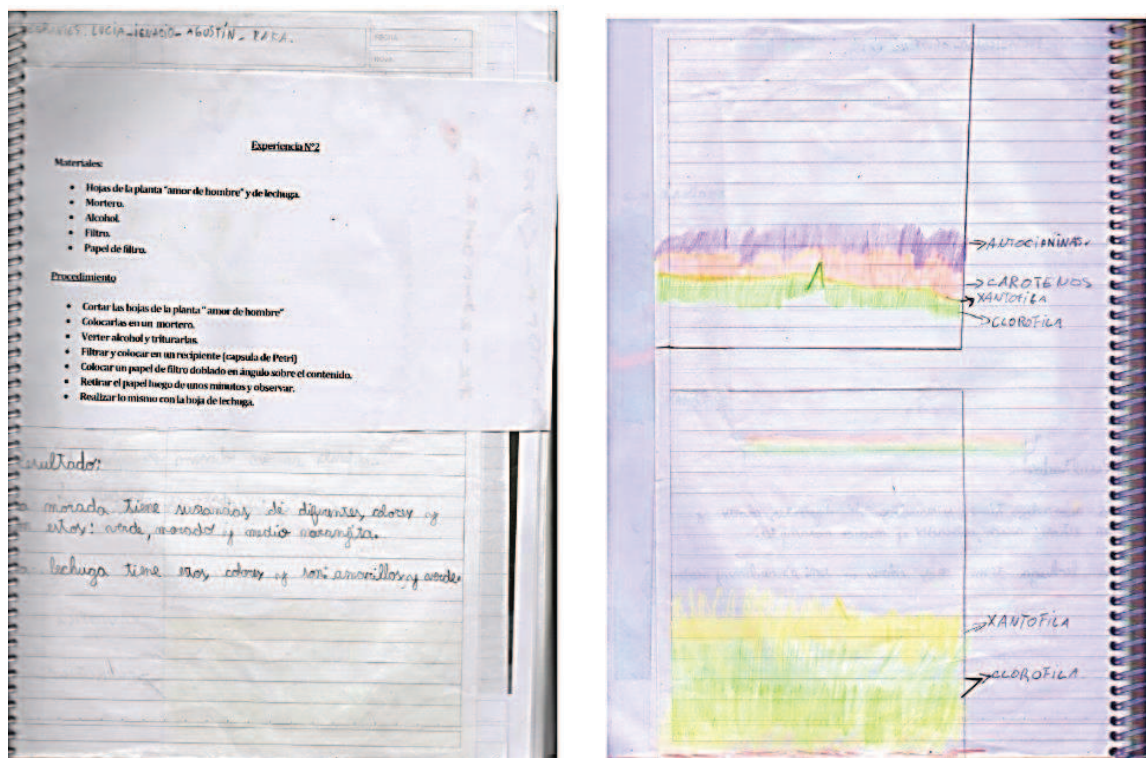 LUCÍA - IGNACIO - AGUSTÍN - RARA.
FECHA
Experiencia Nº2
Materiales:
• Hojas de la planta "amor de hombre" y de lechuga.
• Mortero.
• Alcohol.
• Filtro.
• Papel de filtro.
Procedimiento
• Cortar las hojas de la planta " amor de hombre"
• Colocarlas en un mortero.
• Verter alcohol y triturarlas.
• Filtrar y colocar en un recipiente (capsula de Petri)
• Colocar un papel de filtro doblado en ángulo sobre el contenido.
• Retirar el papel luego de unos minutos y observar.
• Realizar lo mismo con la hoja de lechuga.
esultado:
a morada tiene de diferentes colores y
n estos: verde, morado y medio naranjita.
a lechuga tiene estos colores y son: amarillos y verde.
ANTOCIANINAS.
CAROTENOS
XANTOFILA
CLOROFILA
XANTOFILA
CLOROFILA